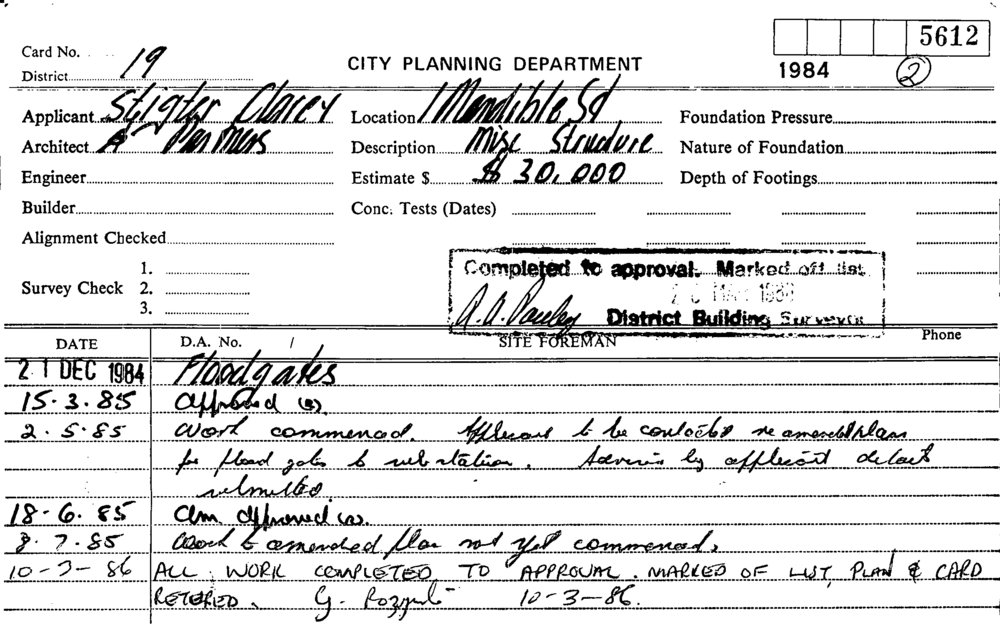 5612
Card No. 19
District
CITY PLANNING DEPARTMENT
1984 2
Applicant Stigter Clarey
Location 1 Mandible St
Foundation Pressure
Architect & Partners
Description Misc Structure
Nature of Foundation
Engineer
Estimate $ $ 30,000
Depth of Footings
Builder
Conc. Tests (Dates)
Alignment Checked
Survey Check 1.
2.
3.
Completed to approval. Marked off list
District Building Surveyor
SITE FOREMAN
Phone
DATE D.A. No. /
21 DEC 1984 Floodgates
15.3.85 Approved
2.5.85 Work commenced. Applicant to be contacted re amended plans
for flood gates to substation. Advise by applicant details
submitted.
18-6.85 Am. Approved
8.7.85 Work to amended plan not yet commenced.
10-3-86 ALL WORK COMPLETED TO APPROVAL. MARKED OF LIST, PLAN & CARD
RETERED. 10-3-86.